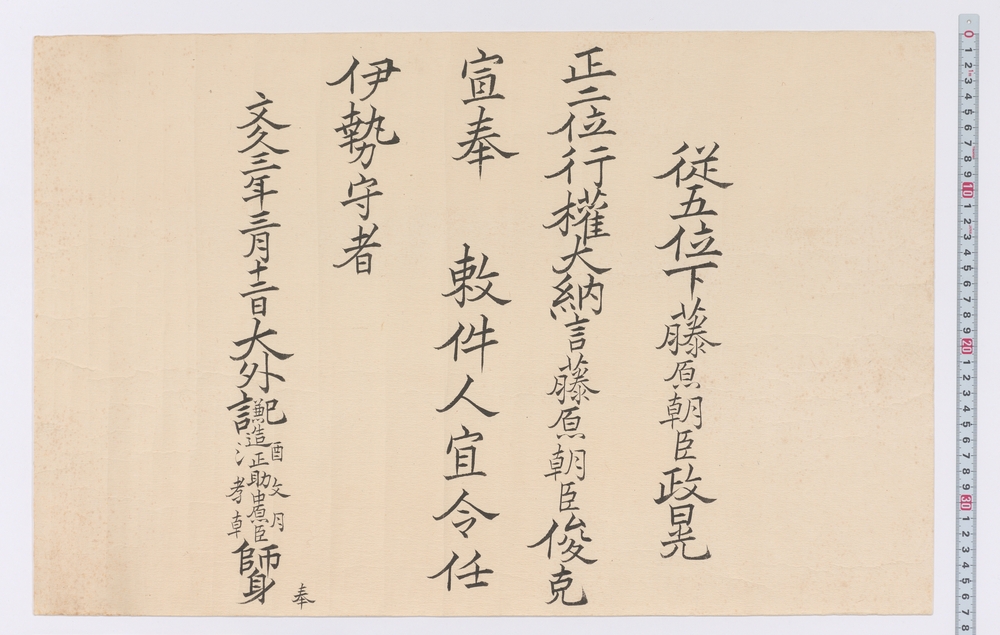 従五位下藤原朝臣政晃
正二位行權大納言藤原朝臣俊克
宣奉 敕件人宜令任
伊勢守者
文久三年三月十二日大外記兼造酒正助教中原朝臣師身 奉